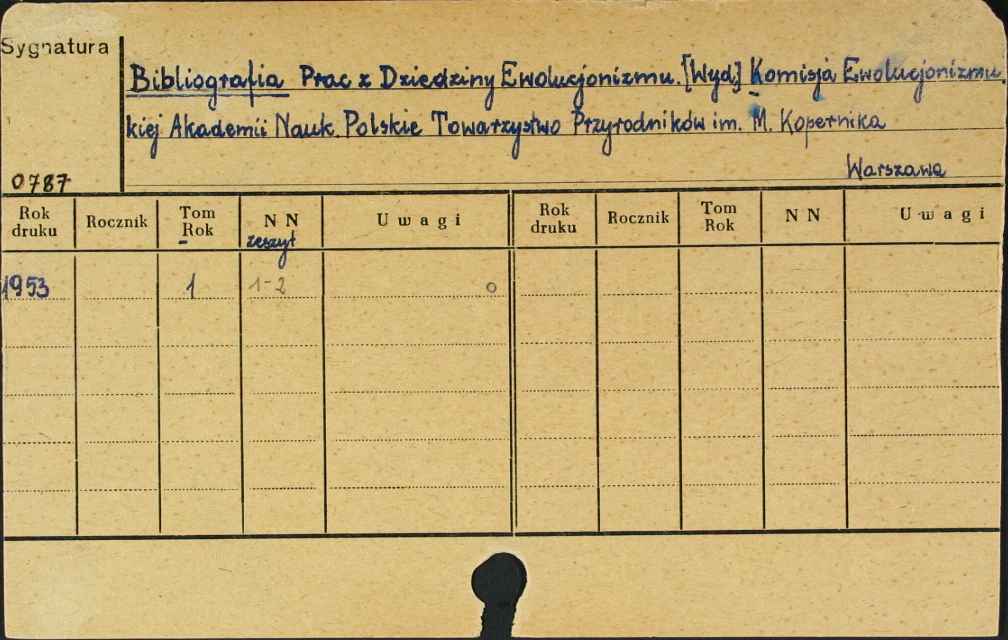 Sygnatura
Bibliografia Prac z Dziedziny Ewolucjonizmu. [Wyd.] Komisja Ewolucjonizmu
kiej Akademii Nauk. Polskie Towarzystwo Przyrodników im. M. Kopernika
Warszawa
0787
Rok druku Rocznik Tom Rok NN zeszyt Uwagi Rok druku Rocznik Tom Rok NN Uwagi
1953 1 1-2 o